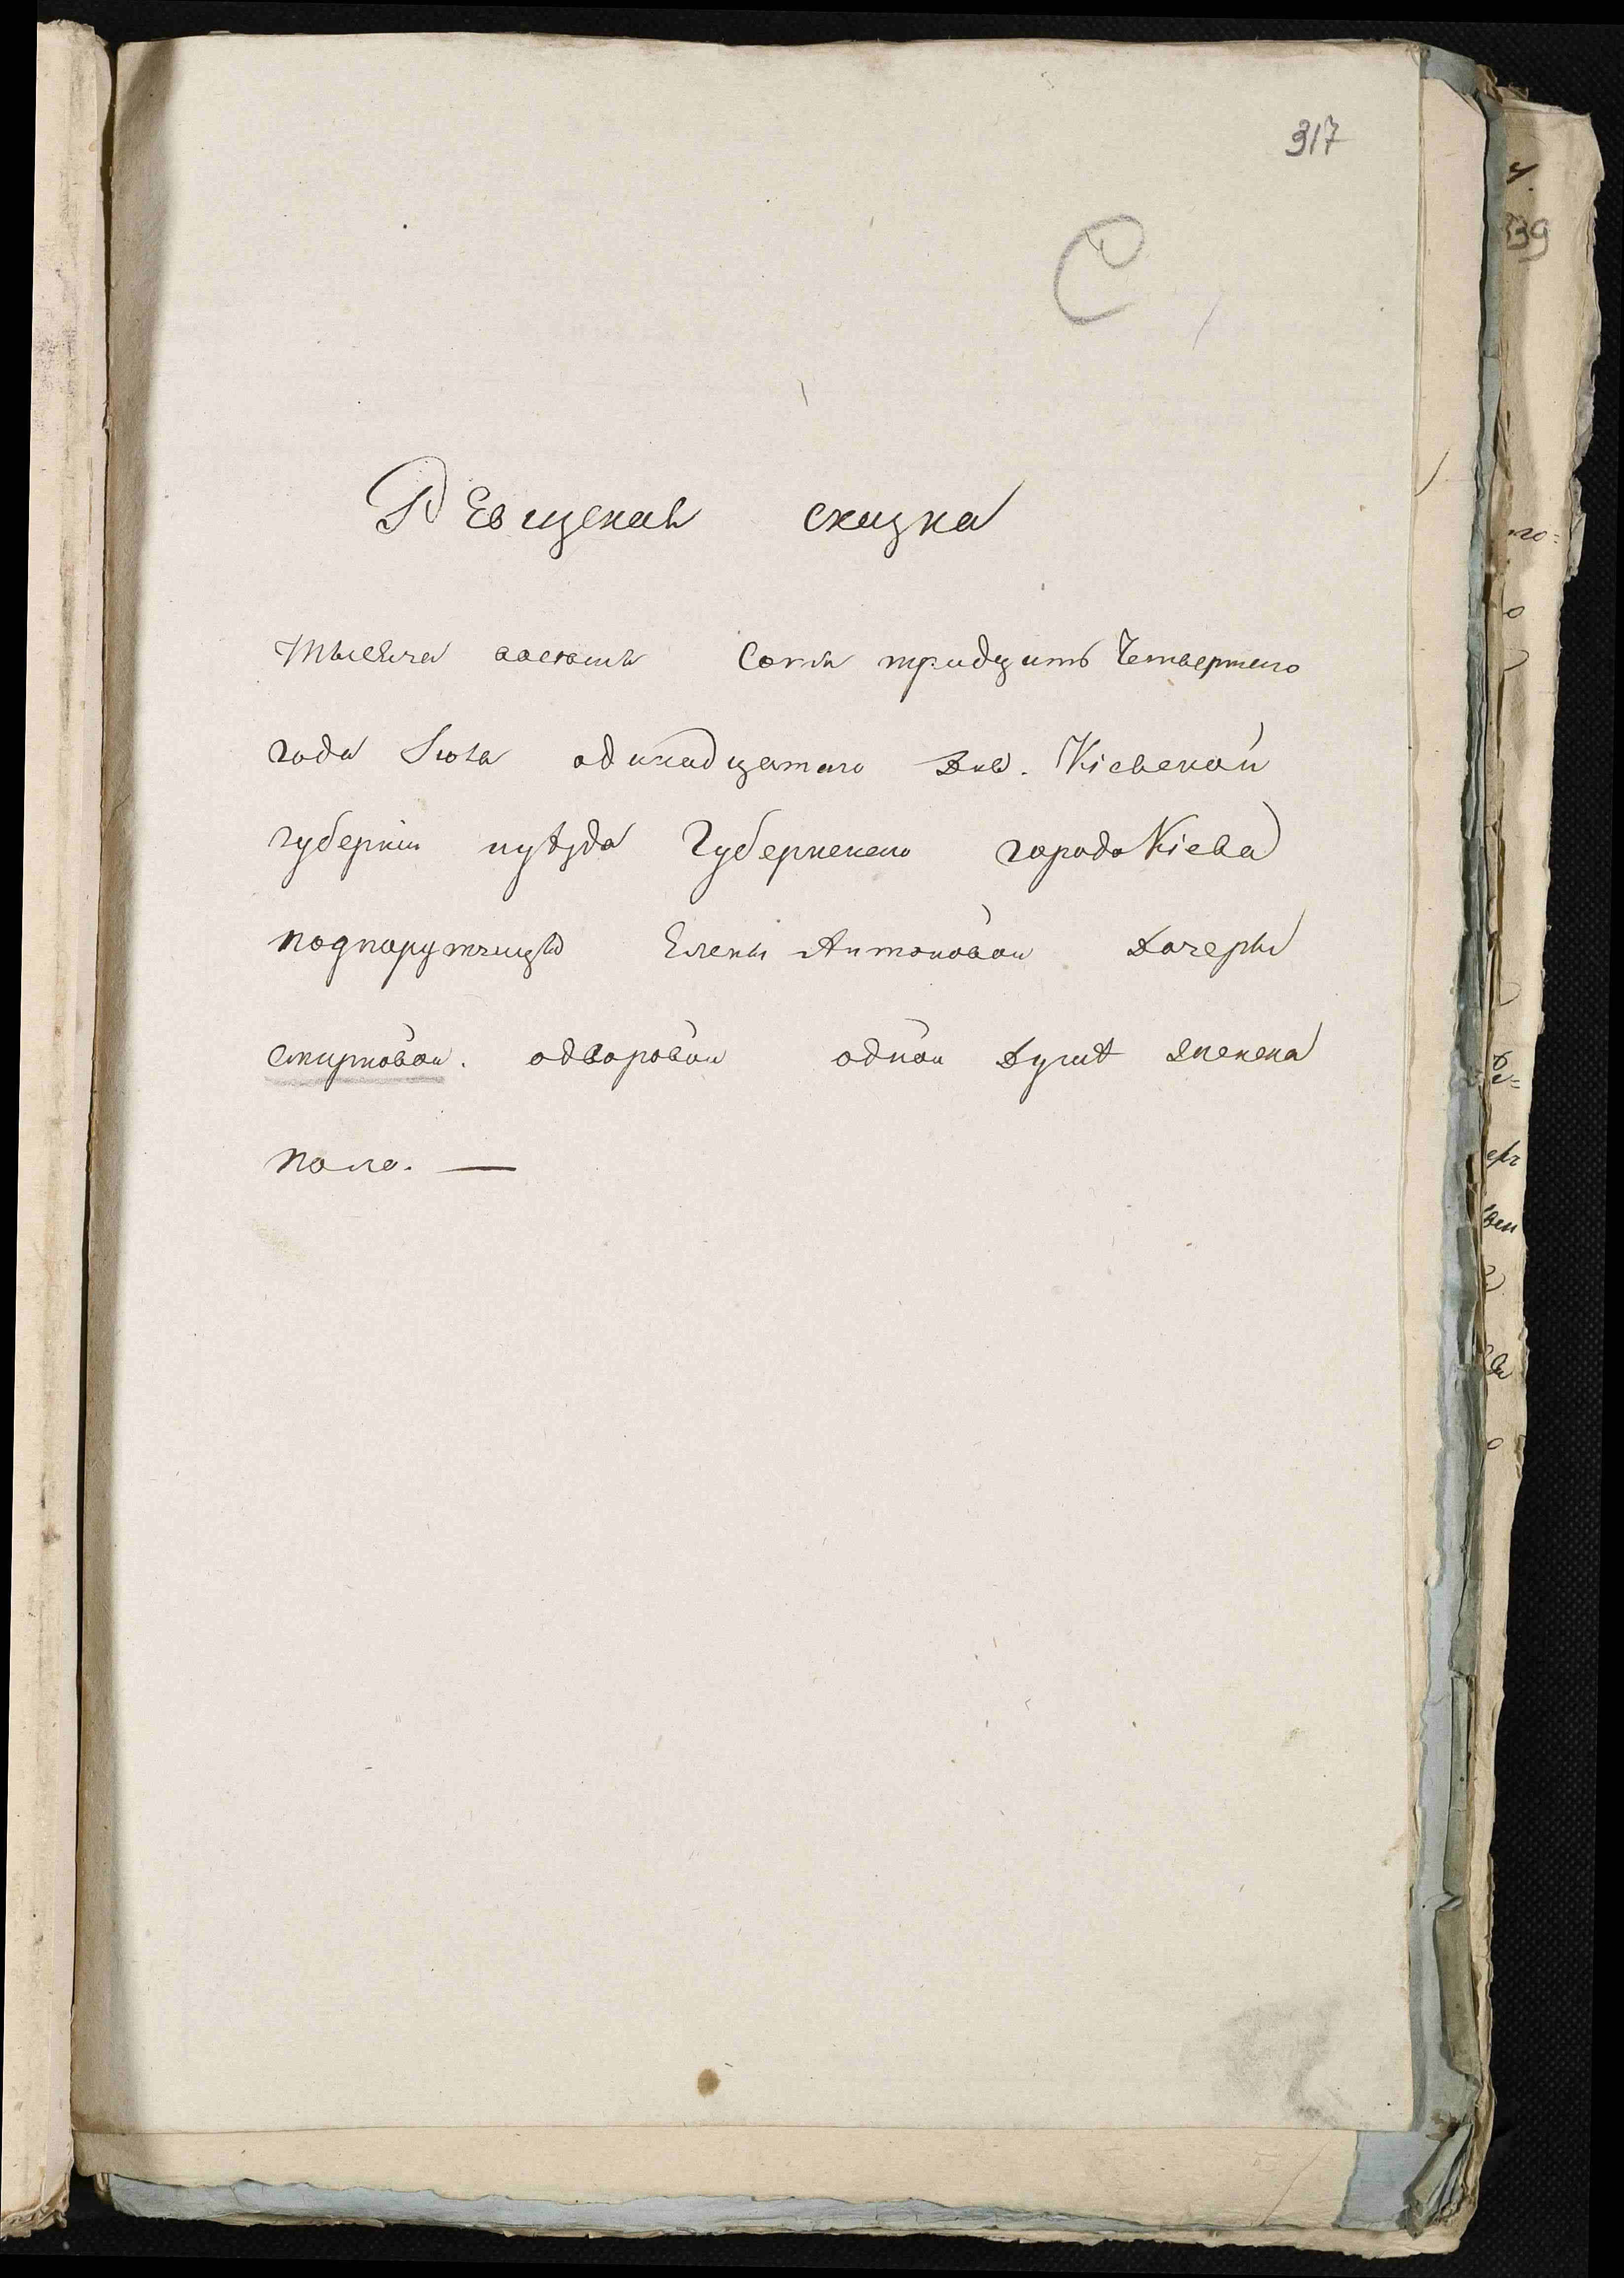 317
С
Ревизская сказка
тысяча восемь сотъ тридцать Четвертаго
года Июля одинадцатаго дня. Кіевской
губерніи иуѣзда Губернскаго города Кіева
подпорутчицы Елены Антоновой дочеры
Смирновой. одворовой одной душѣ женска
пола. —